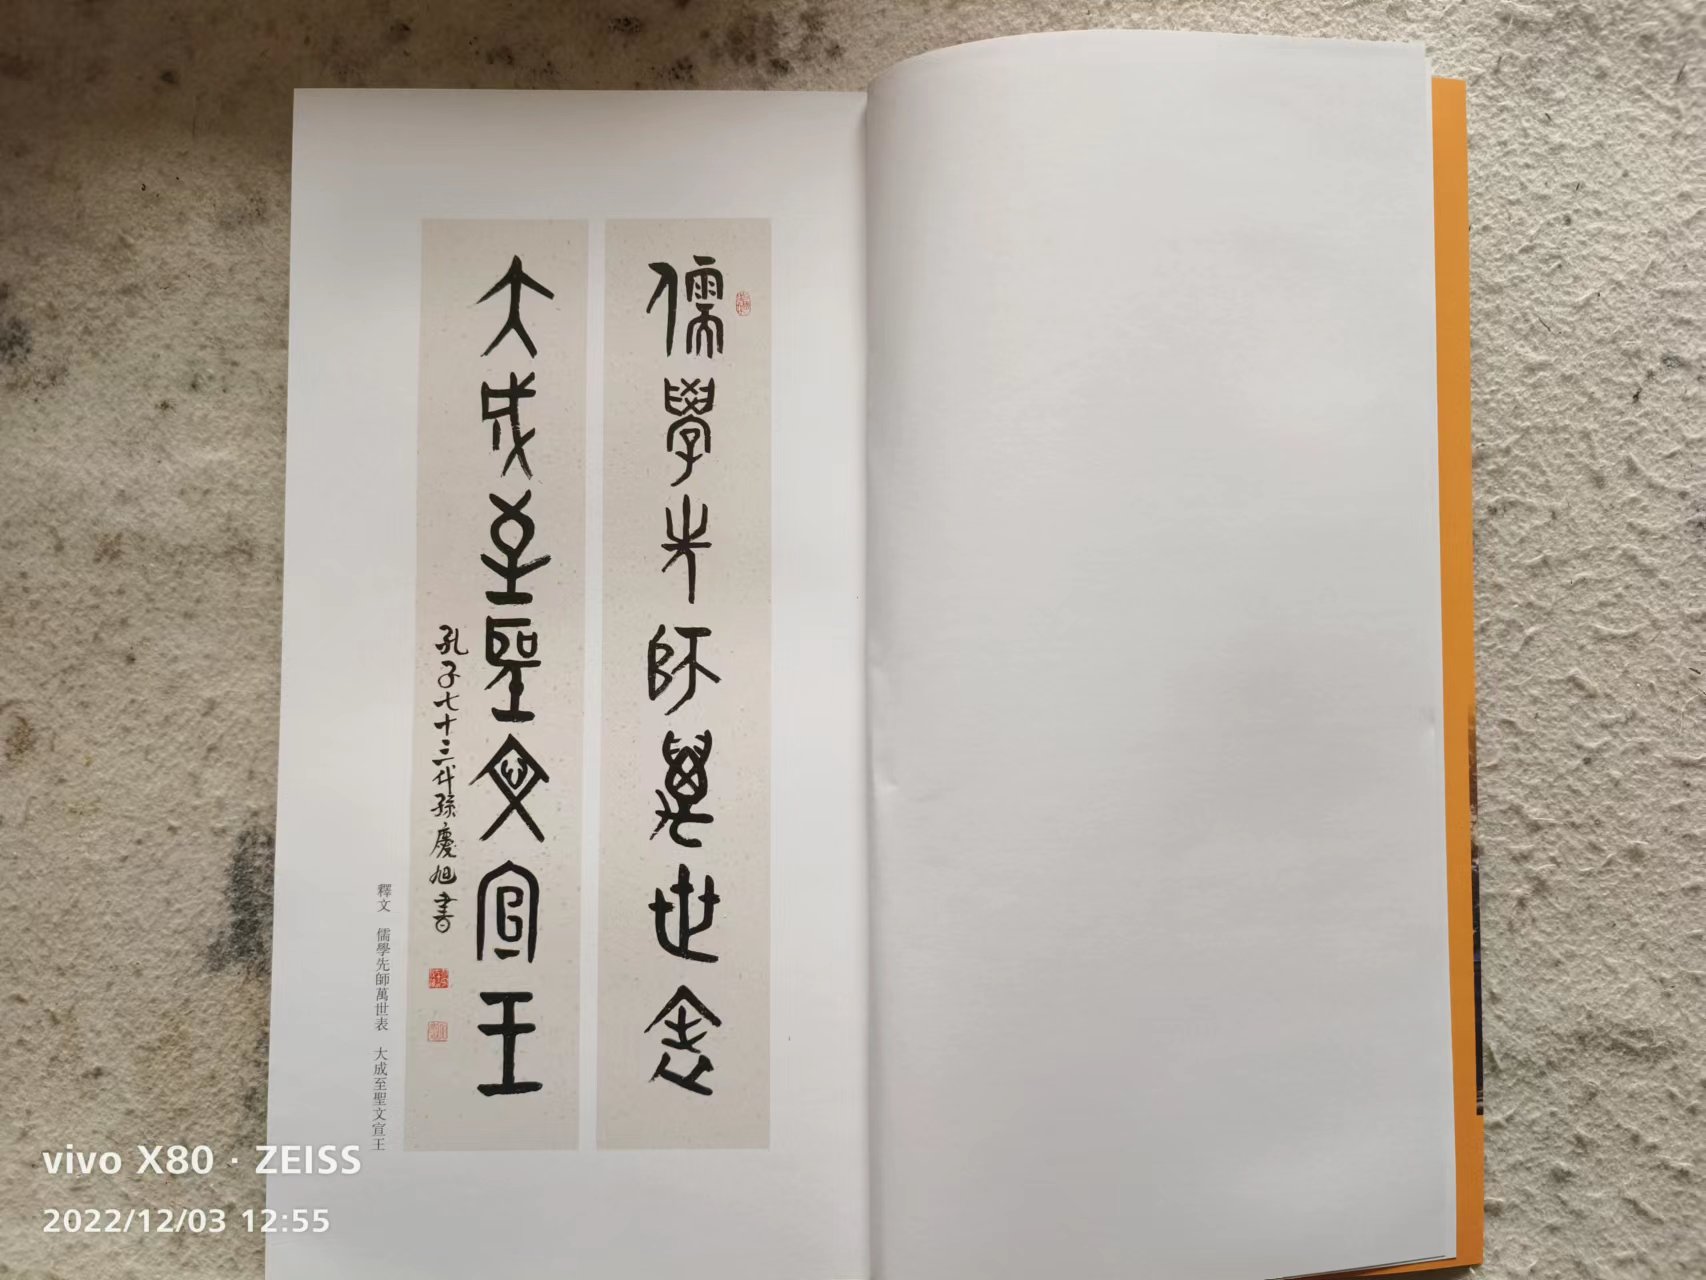 儒學先師萬世表
大成至聖文宣王
孔子七十三代孫慶旭書
釋文 儒學先師萬世表 大成至聖文宣王
vivo X80 · ZEISS
2022/12/03 12:55